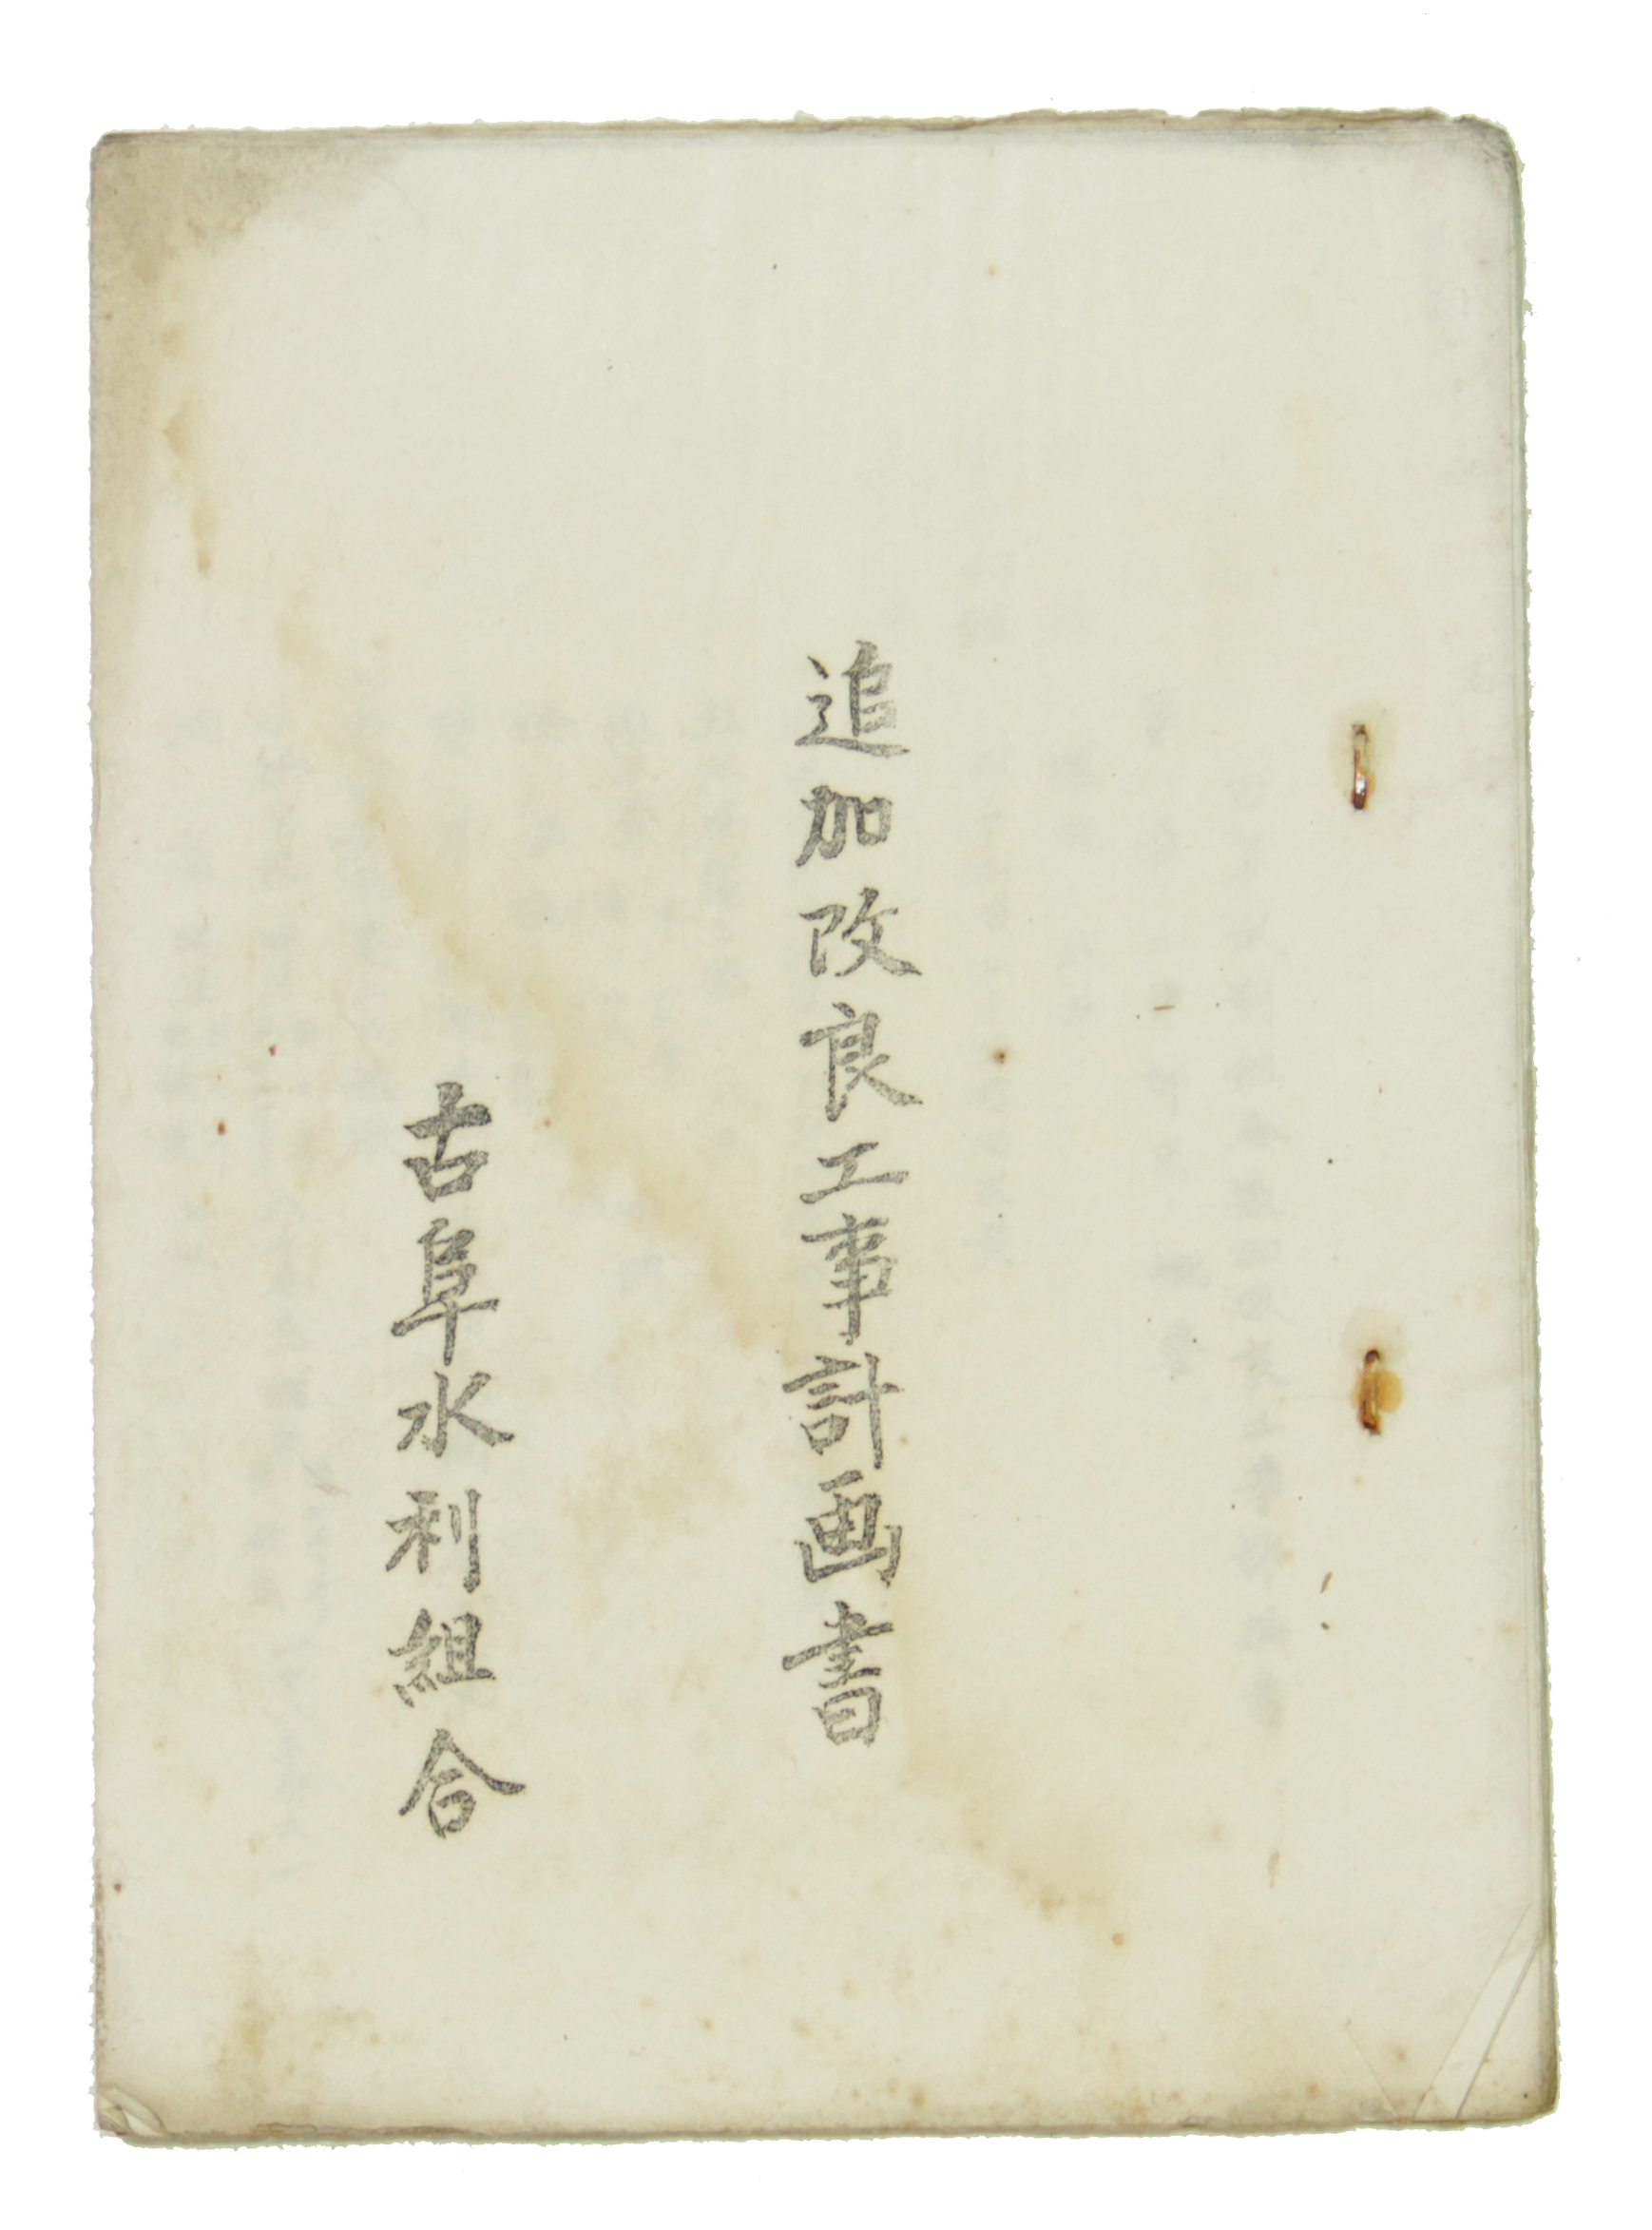 追加改良工事計画書
古阜水利組合